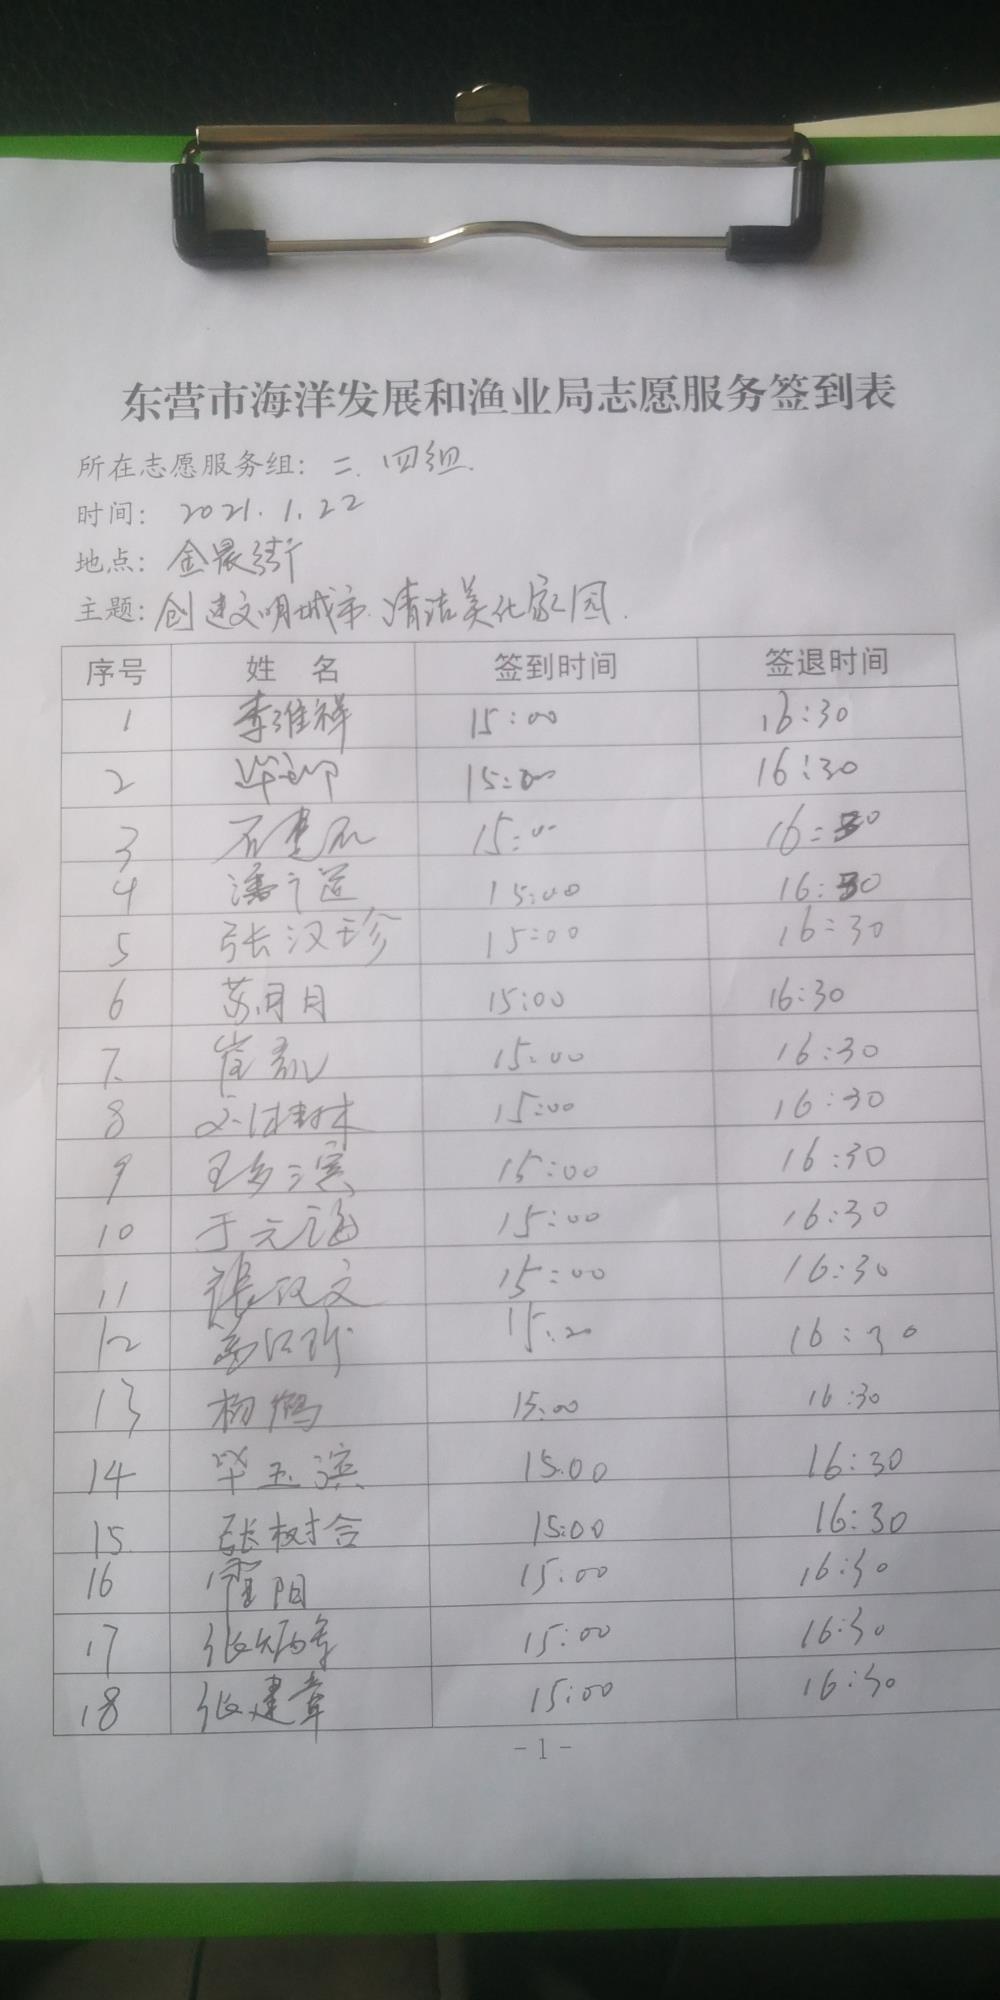 东营市海洋发展和渔业局志愿服务签到表
所在志愿服务组：二、四组
时间：2021.1.22
地点：金晨街
主题：创建文明城市 清洁美化家园
序号 姓名 签到时间 签退时间
1 李维祥 15:00 16:30
2 15:00 16:30
3 15:00 16:30
4 潘 道 15:00 16:30
5 张汉珍 15:00 16:30
6 苏月月 15:00 16:30
7 崔凯 15:00 16:30
8 15:00 16:30
9 王 滨 15:00 16:30
10 于元海 15:00 16:30
11 张汉文 15:00 16:30
12 16:30
13 杨鹤 15:00 16:30
14 毕玉滨 15:00 16:30
15 张树合 15:00 16:30
16 霍阳 15:00 16:30
17 张 15:00 16:30
18 张建章 15:00 16:30
- 1 -